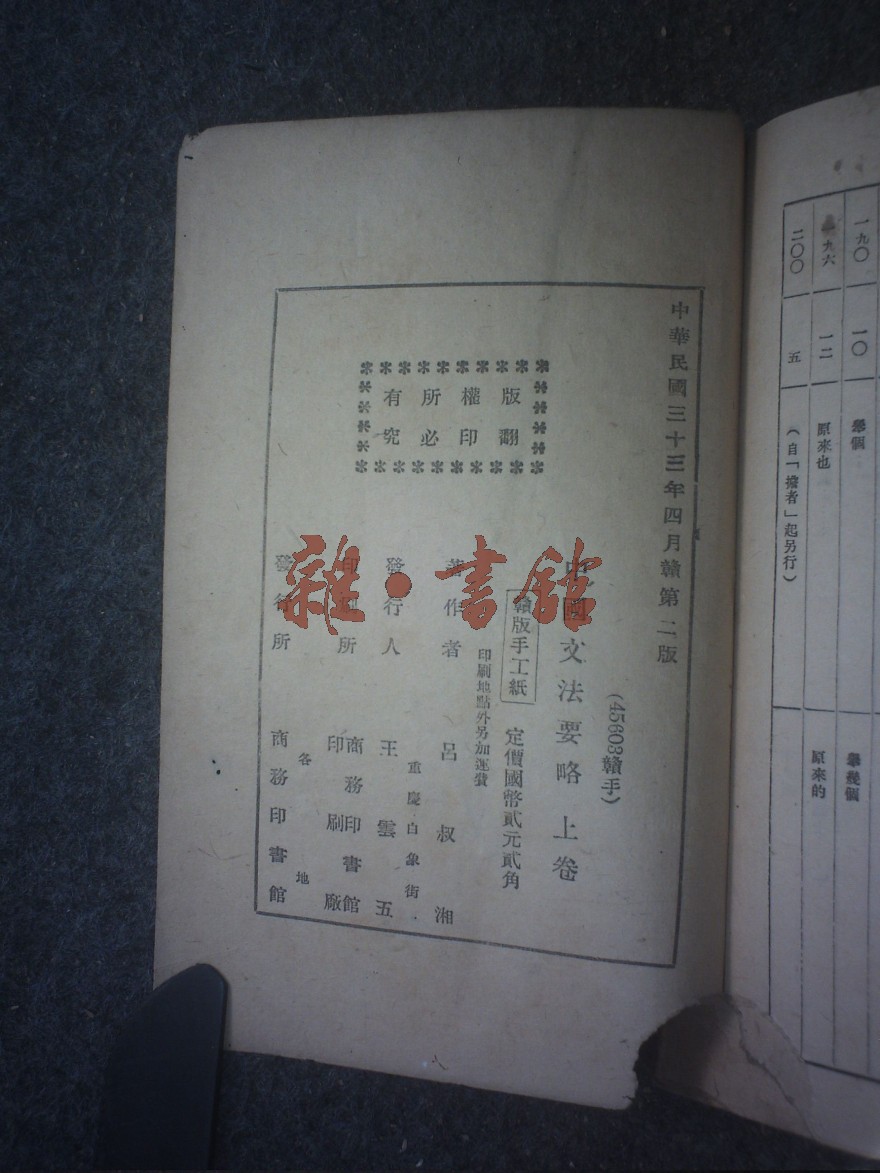 中華民國三十三年四月贛第二版
(45603贛手)
中國文法要略上卷
贛版手工紙
定價國幣貳元貳角
印刷地點外另加運費
版權所有
翻印必究
著作者 呂叔湘
重慶白象街
發行人 王雲五
印刷所 商務印書館印刷廠
各地
發行所 商務印書館
雜·書館
一九〇 一〇 舉個 舉幾個
九六 一二 原來也 原來的
二〇〇 五 (自「擔者」起另行)